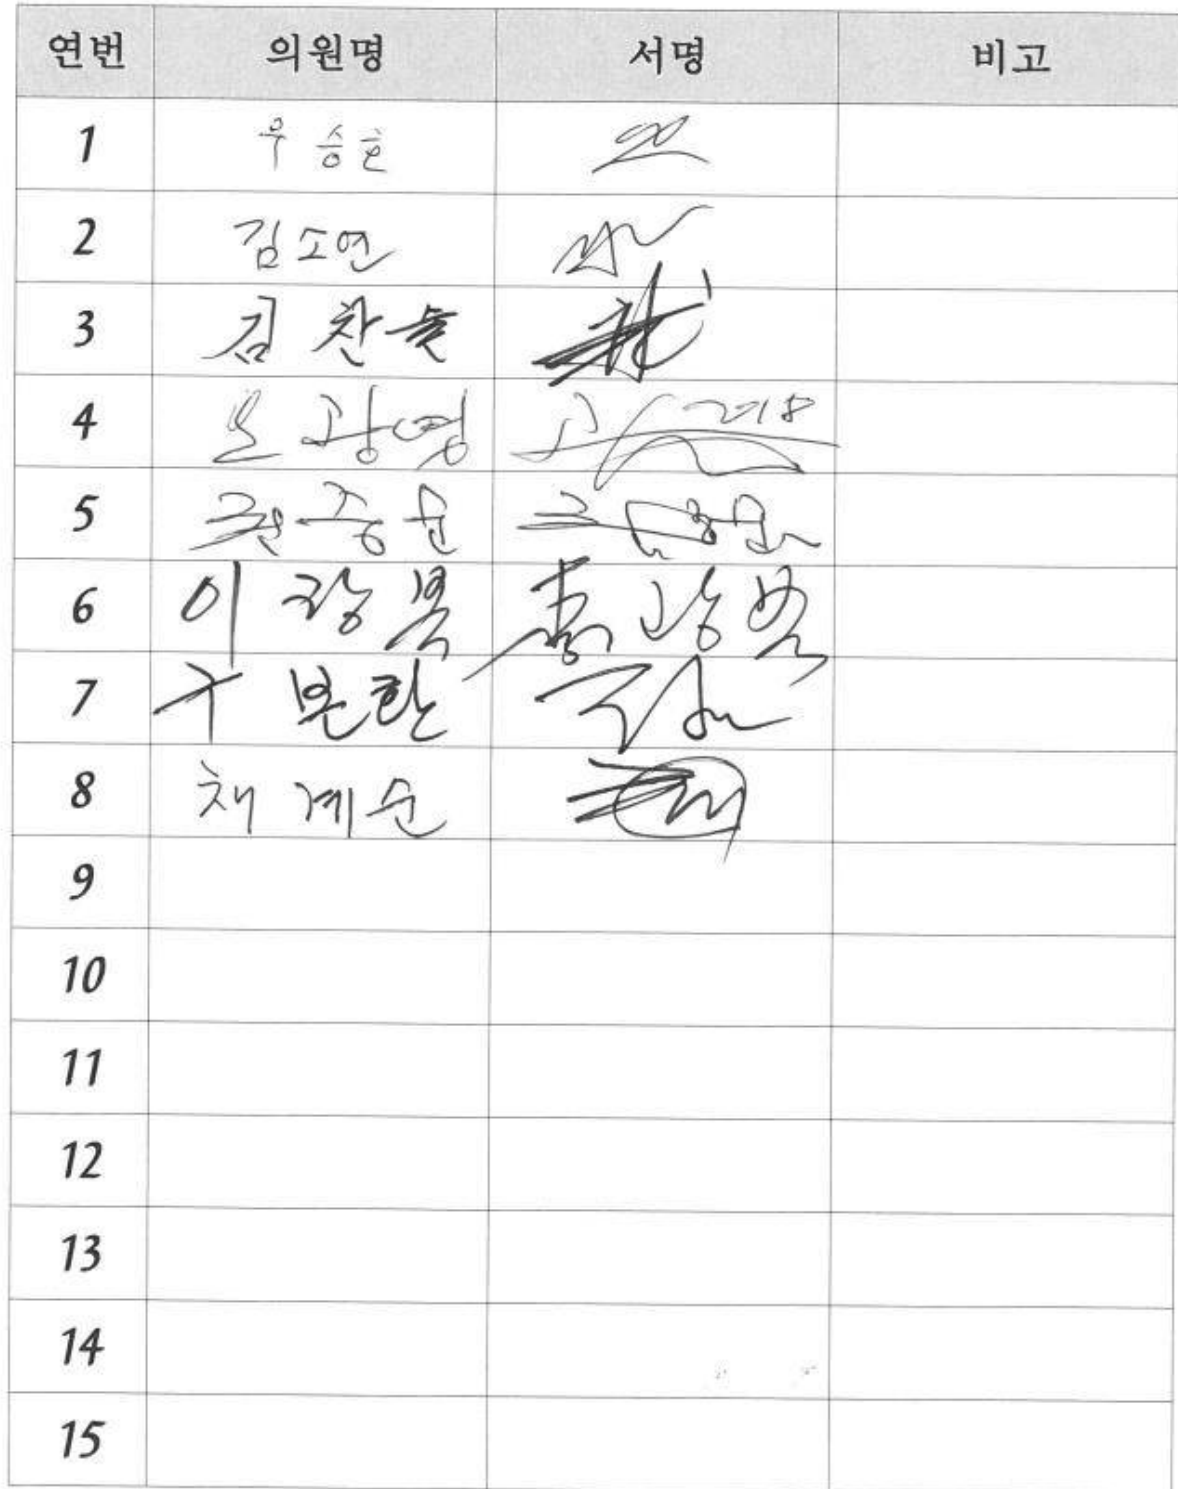 연번 의원명 서명 비고
1 우승호
2 김소연
3 김찬술
4 오광영
5 권중순
6 이광복 李광복
7 구본환
8 채계순
9
10
11
12
13
14
15